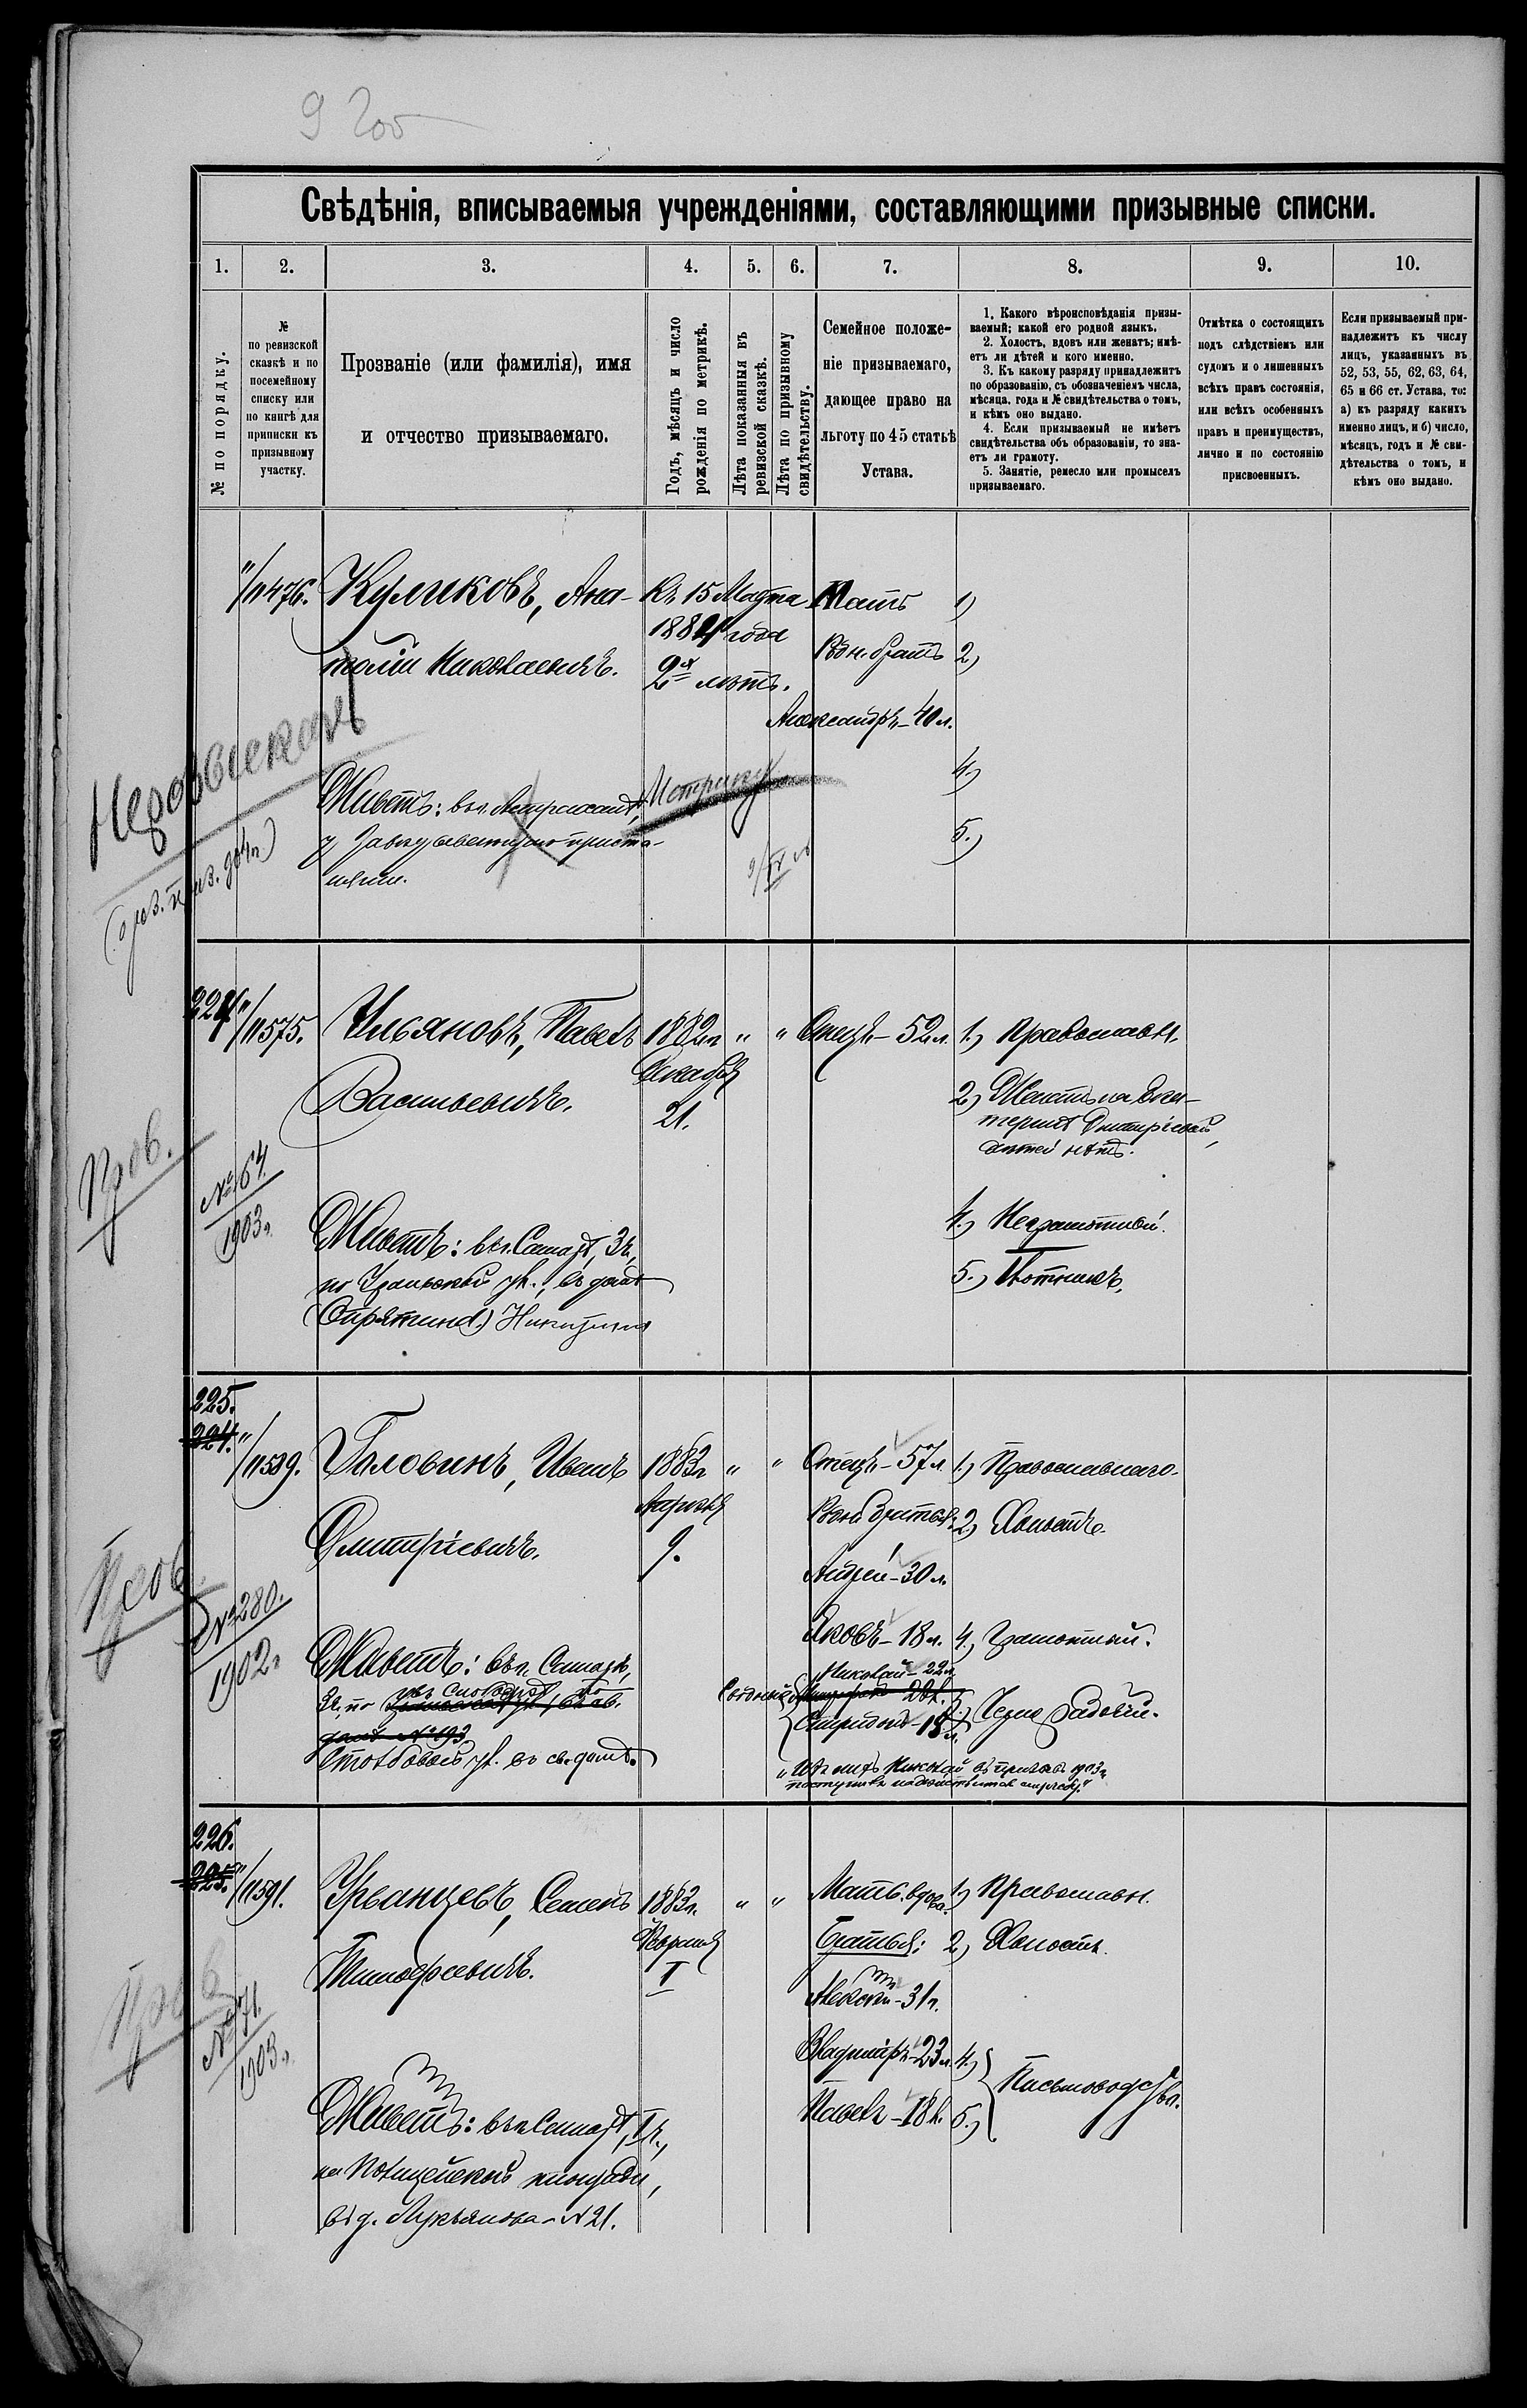 9 200
Свѣдѣнія, вписываемыя учрежденіями, составляющими призывные списки.
1. 2. 3. 4. 5. 6. 7. 8. 9. 10.
№ по порядку.
№
по ревизской
сказкѣ и по
посемейному
списку или
по книгѣ для
приписки къ
призывному
участку.
Прозваніе (или фамилія), имя
и отчество призываемаго.
Годъ, мѣсяцъ и число
рожденія по метрикѣ.
Лѣта показанныя въ
ревизской сказкѣ.
Лѣта по призывному
свидѣтельству.
Семейное положе-
ніе призываемаго,
дающее право на
льготу по 45 статьѣ
Устава.
1. Какого вѣроисповѣданія призы-
ваемый; какой его родной языкъ.
2. Холостъ, вдовъ или женатъ; имѣ-
етъ ли дѣтей и кого именно.
3. Къ какому разряду принадлежитъ
по образованію, съ обозначеніемъ числа,
мѣсяца, года и № свидѣтельства о томъ,
и кѣмъ оно выдано.
4. Если призываемый не имѣетъ
свидѣтельства объ образованіи, то зна-
етъ ли грамоту.
5. Занятіе, ремесло или промыселъ
призываемаго.
Отмѣтка о состоящихъ
подъ слѣдствіемъ или
судомъ и о лишенныхъ
всѣхъ правъ состоянія,
или всѣхъ особенныхъ
правъ и преимуществъ,
лично и по состоянію
присвоенныхъ.
Если призываемый при-
надлежитъ къ числу
лицъ, указанныхъ въ
52, 53, 55, 62, 63, 64,
65 и 66 ст. Устава, то:
а) къ разряду какихъ
именно лицъ, и б) число,
мѣсяцъ, годъ и № сви-
дѣтельства о томъ, и
кѣмъ оно выдано.
"/11476. Куликовъ, Ана-
толій Николаевичъ.
Къ 15 Марта
1884 года
2х лѣтъ.
Мать
Родн. братъ
Александръ - 40 л.
1)
2)
4)
5.)
Живетъ: въ г.
Метрику
224. "/11575. Ульяновъ, Павелъ
Васильевичъ.
1882 г.
Декабря
21.
" "
Отецъ - 52 л.
1.) Православн.
2.) Женатъ на Ека-
теринѣ Дмитріевой,
дѣтей нѣтъ.
4.) Неграмотный.
5.) Плотникъ.
Пров.
№ 64.
1903 г.
Живетъ: въ г. Самарѣ, 3 ч.,
по Уральской ул., въ домѣ
225.
224. "/11589. Головинъ, Иванъ
Дмитріевичъ.
1883 г.
Апрѣля
9.
" "
Отецъ - 57 л.
Родн. братья:
Андрей - 30 л.
Яковъ - 18 л.
Николай - 22 л.
Сводные
Спиридонъ - 18 л.
1.) Православнаго.
2.) Холостъ.
4.) Грамотный.
5.) Черно рабочій.
Пров.
№ 280.
1902 г.
Живетъ: въ г. Самарѣ,
домѣ № 193
ул. въ св. домѣ.
226.
225. "/11591. Урванцевъ, Семенъ
Тимофеевичъ.
1883 г.
Февраля
1
" "
Мать вдова.
Братья:
Алексѣй - 31 г.
Владиміръ - 23 л.
Павелъ - 18 л.
1.) Православн.
2.) Холостъ.
4.)
5.) Письмоводство.
Пров
№ 71.
1903 г.
Живетъ: въ г. Самарѣ, 1 ч.,
на Полицейской площади,
въ д. Лукьянова - № 21.